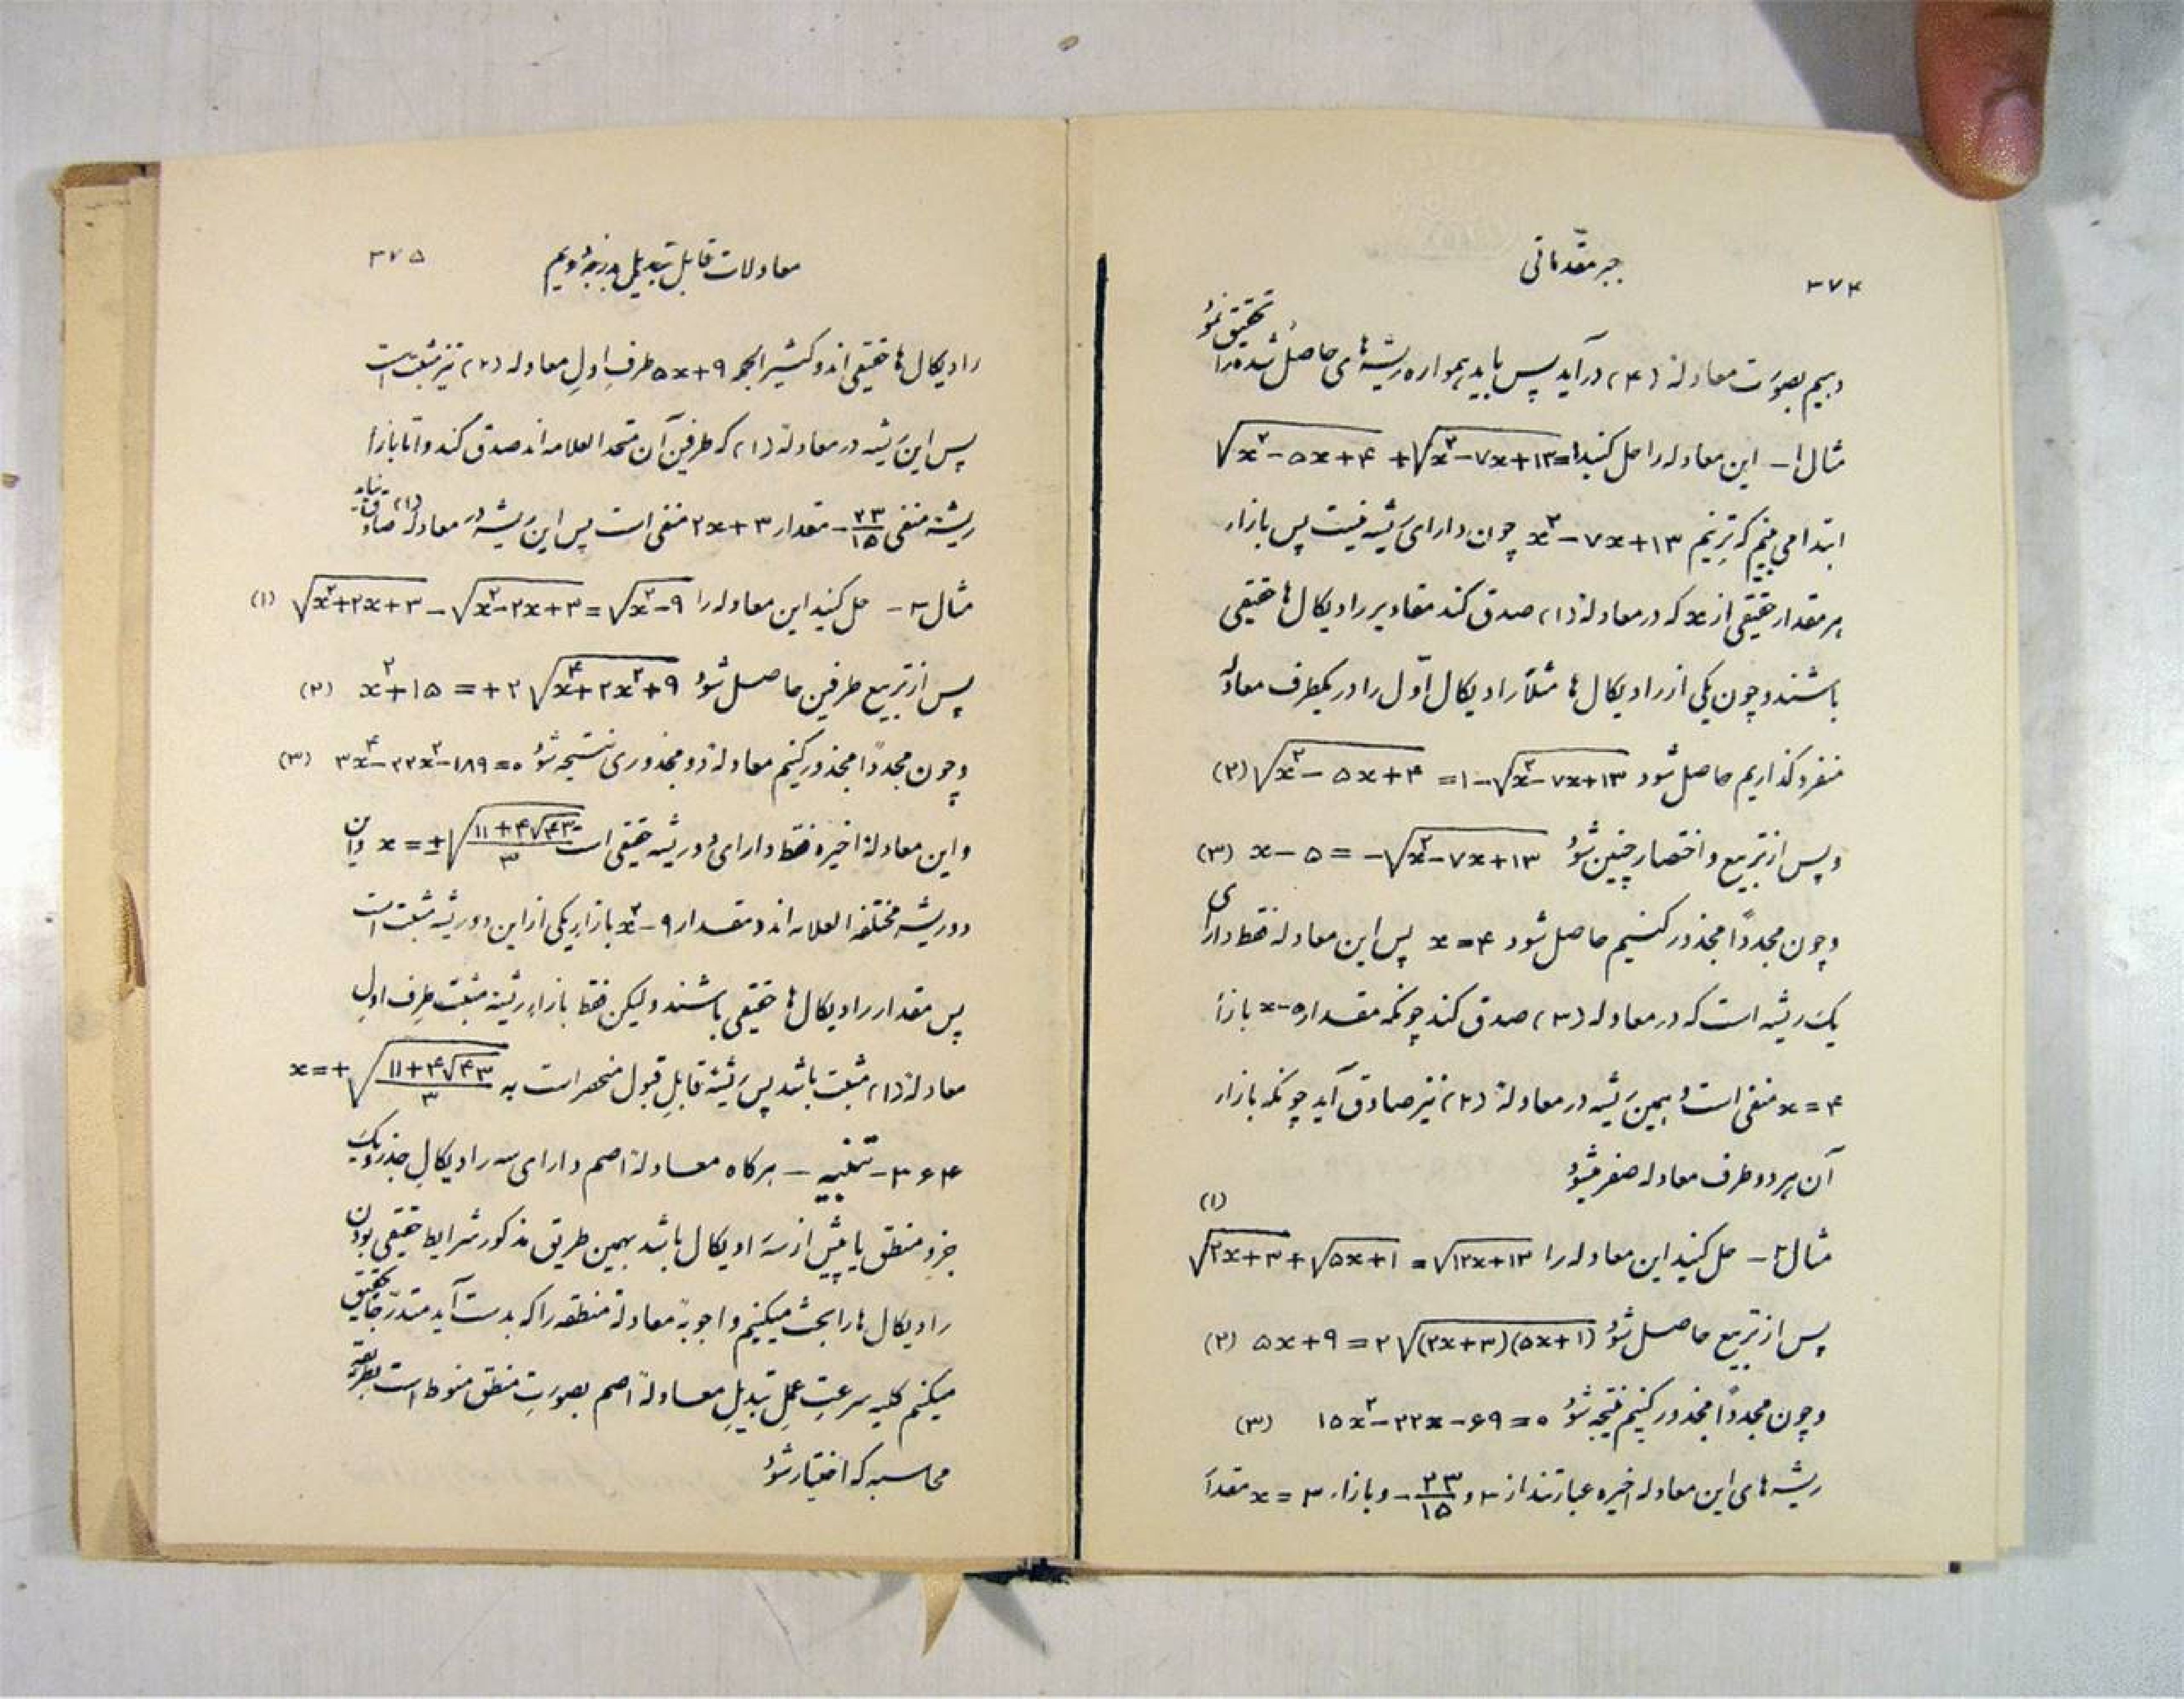 ۳۷۴
جبر مقدماتی
دهیم بصورت معادلهٔ (۴) درآید پس باید همواره ریشه‌های حاصل شده را تحقیق نمود
مثال ۱- این معادله را حل کنید √(x²-۵x+۴) + √(x²-۷x+۱۳) = ۱
ابتدا می بینیم که ترینم x²-۷x+۱۳ چون دارای ریشه نیست پس بازاء
هر مقدار حقیقی از x که در معادلهٔ (۱) صدق کند مقادیر رادیکال‌ها حقیقی
باشند و چون یکی از رادیکال‌ها مثلاً رادیکال اوّل را در یکطرف معادله
منفرد گذاریم حاصل شود √(x²-۵x+۴) = ۱-√(x²-۷x+۱۳) (۲)
و پس از تربیع و اختصار چنین شود x-۵ = -√(x²-۷x+۱۳) (۳)
و چون مجدداً مجذور کنیم حاصل شود x=۴ پس این معادله فقط دارای
یک ریشه است که در معادله (۳) صدق کند چونکه مقدار x-۵ بازأ
x=۴ منفی است و همین ریشه در معادلهٔ (۲) نیز صادق آید چونکه بازاء
آن هر دو طرف معادله صفر میشود
مثال ۲- حل کنید این معادله را √(۲x+۳) + √(۵x+۱) = √(۱۲x+۱۳) (۱)
پس از تربیع حاصل شود ۵x+۹ = ۲√((۲x+۳)(۵x+۱)) (۲)
و چون مجدداً مجذور کنیم نتیجه شود ۱۵x²-۲۲x-۶۹=۰ (۳)
ریشه‌های این معادله اخیره عبارتند از ۳ و -۲۳/۱۵ و بازاء x=۳ مقدار
معادلات قابل تبدیل بدرجهٔ دویم
۳۷۵
رادیکال‌ها حقیقی اند و کثیرالجمله ۵x+۹ طرف اول معادله (۲) نیز مثبت است
پس این ریشه در معادلهٔ (۱) که طرفین آن متحد العلامه اند صدق کند و اما بازأ
ریشهٔ منفی -۲۳/۱۵ مقدار ۲x+۳ منفی است پس این ریشه در معادله (۱) صادق نیاید
مثال ۳- حل کنید این معادله را √(x²+۲x+۳) - √(x²-۲x+۳) = √(x²-۹) (۱)
پس از تربیع طرفین حاصل شود x²+۱۵ = +۲√(x⁴+۲x²+۹) (۲)
و چون مجدداً مجذور کنیم معادلهٔ دو مجذوری نتیجه شود ۳x⁴-۲۲x²-۱۸۹=۰ (۳)
و این معادلهٔ اخیره فقط دارای دو ریشه حقیقی است x=±√((۱۱+۴√۴۳)/۳) و این
دو ریشه مختلفة العلامه اند و مقدار x²-۹ بازاء یکی از این دو ریشه مثبت است
پس مقدار رادیکال‌ها حقیقی باشند ولیکن فقط بازاء ریشهٔ مثبت طرف اول
معادلهٔ (۱) مثبت باشد پس ریشهٔ قابل قبول منحصر است به x=+√((۱۱+۴√۴۳)/۳)
۳۶۴- تنبیه – هرگاه معادلهٔ اصم دارای سه رادیکال جذر و یک
جزو منطق یا بیش از سه رادیکال باشد بهمین طریق مذکور شرایط حقیقی بودن
رادیکال‌ها را بحث میکنیم و اجوبهٔ معادلهٔ منطقه را که بدست آید متدرجاً تحقیق
میکنیم کلیه سرعت عمل تبدیل معادلهٔ اصم بصورت منطق منوط است بطریقه
محاسبه که اختیار شود